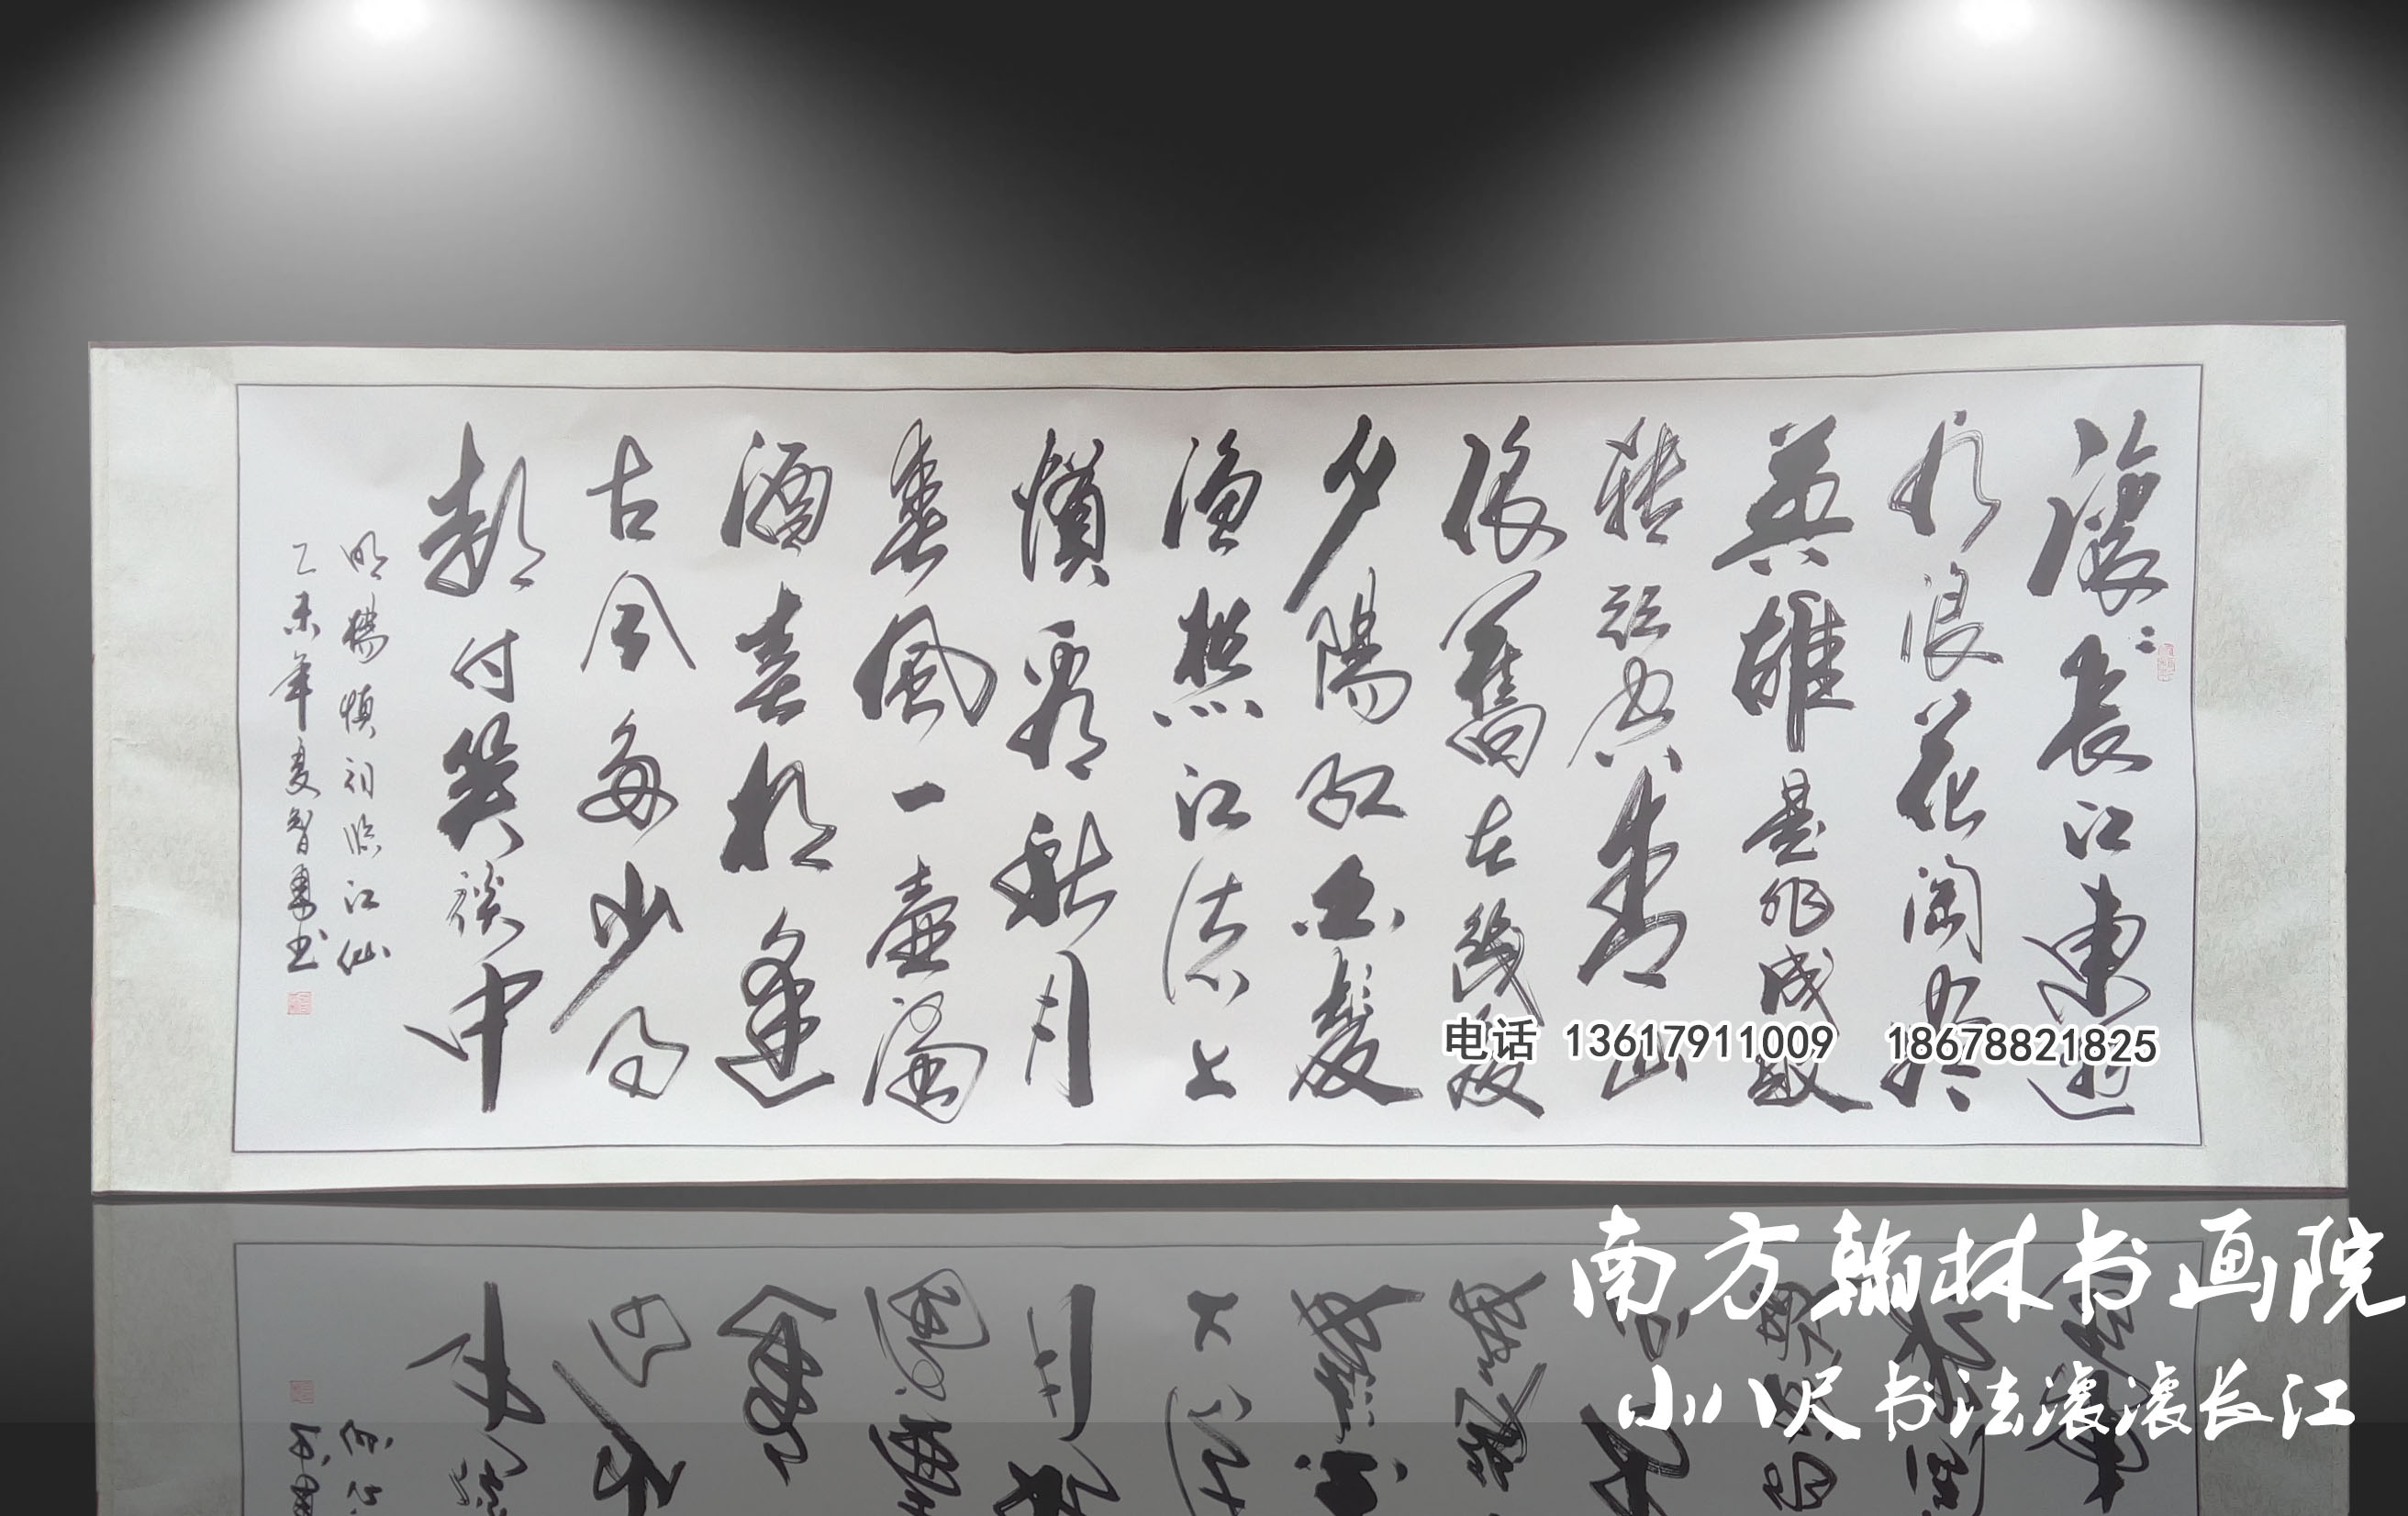 滚〻長江東逝
水浪花淘尽
英雄是非成敗
转頭空青山
依舊在幾度
夕陽红白髮
渔樵江渚上
慣看秋月
春風一壶濁
酒喜相逢
古今多少事
都付笑談中
明楊慎词临江仙
乙未年夏智勇书
电话 13617911009 18678821825
南方翰林书画院
小八尺书法滚滚长江